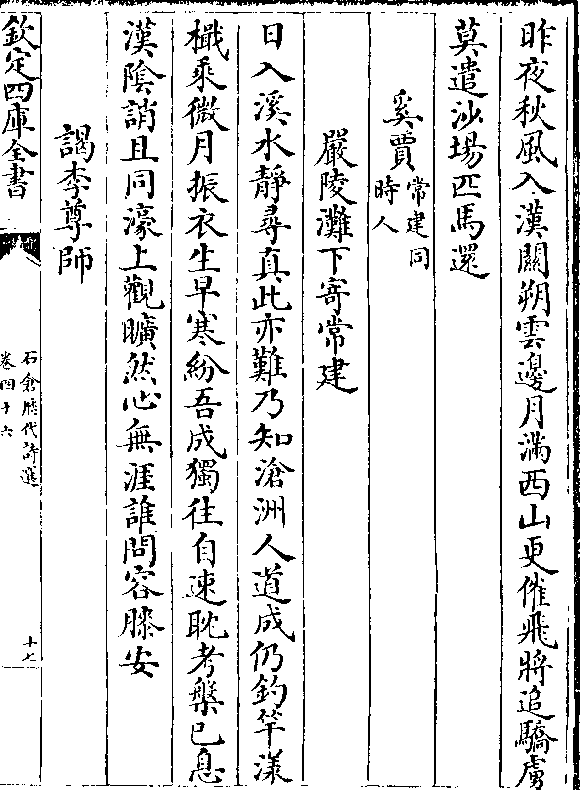 昨夜秋風入漢關朔雲邊月滿西山更催飛將追驕虜
莫遣沙場匹馬還
奚賈常建同
時人
嚴陵灘下寄常建
日入溪水靜尋真此亦難乃知滄洲人道成仍釣竿漾
檝乘微月振衣生早寒紛吾成獨往自速耽考槃已息
漢陰誚且同濠上觀曠然心無涯誰問容膝安
謁李尊師
欽定四庫全書
石倉歴代詩選
卷四十六
十七